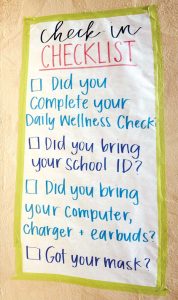 check in
CHECKLIST
Did you
complete your
Daily Wellness Check?
Did you bring
your school ID?
Did you bring
your computer,
charger + earbuds?
Got your mask?